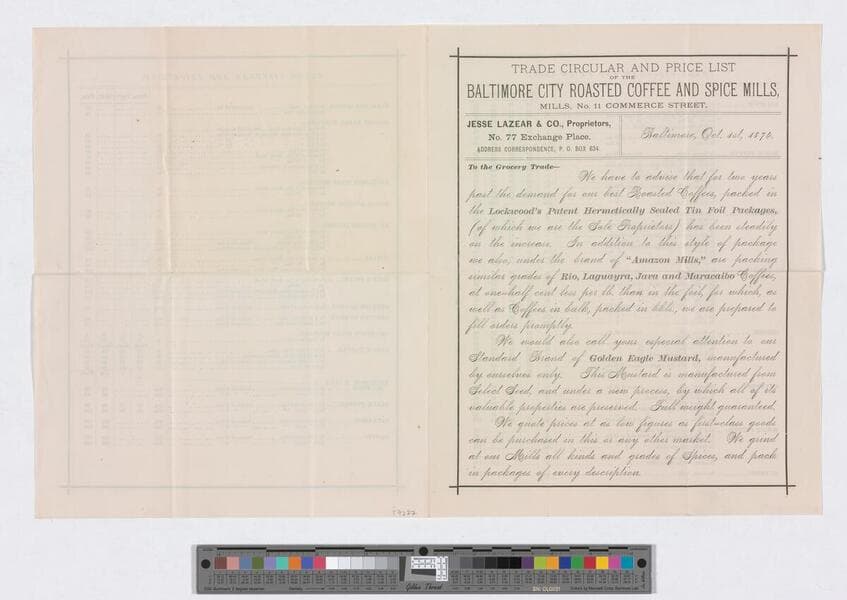 TRADE CIRCULAR AND PRICE LIST
OF THE
BALTIMORE CITY ROASTED COFFEE AND SPICE MILLS,
MILLS, No. 11 COMMERCE STREET.
JESSE LAZEAR & CO., Proprietors,
No. 77 Exchange Place.
ADDRESS CORRESPONDENCE, P. O. BOX 634.
Baltimore, Oct. 1st, 1876.
To the Grocery Trade—
We have to advise that for two years
past the demand for our best Roasted Coffees, packed in
the Lockwood's Patent Hermetically Sealed Tin Foil Packages,
(of which we are the Sole Proprietors) has been steadily
on the increase. In addition to this style of package
we also, under the brand of "Amazon Mills," are packing
similar grades of Rio, Laguayra, Java and Maracaibo Coffees,
at one-half cent less per lb. than in the foil, for which, as
well as Coffees in bulk, packed in bbls., we are prepared to
fill orders promptly.
We would also call your especial attention to our
Standard Brand of Golden Eagle Mustard, manufactured
by ourselves only. This Mustard is manufactured from
Select Seed, and under a new process, by which all of its
valuable properties are preserved. Full weight guaranteed.
We quote prices at as low figures as first-class goods
can be purchased in this or any other market. We grind
at our Mills all kinds and grades of Spices, and pack
in packages of every description.
Golden Thread